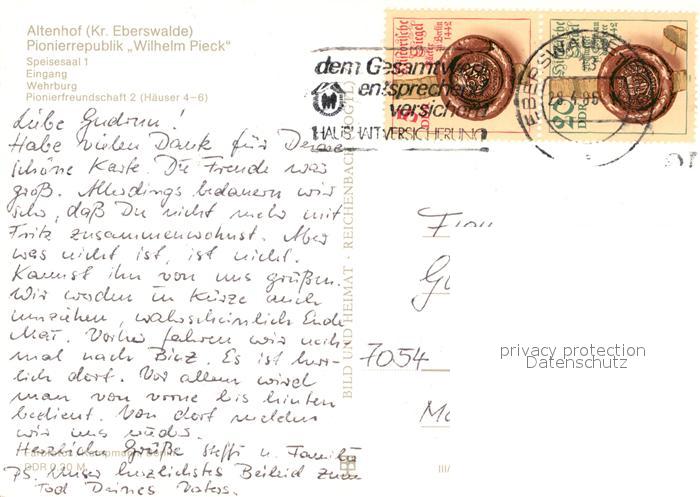 Altenhof (Kr. Eberswalde)
Pionierrepublik „Wilhelm Pieck"
Speisesaal 1
Eingang
Wehrburg
Pionierfreundschaft 2 (Häuser 4–6)
Liebe Gudrun!
Habe vielen Dank für Deine
schöne Karte. Die Freude war
groß. Allerdings bedauern wir
sehr, daß Du nicht mehr mit
Fritz zusammenwohnst. Aber
was nicht ist, ist nicht.
Kannst ihn von uns grüßen.
Wir werden in Kürze auch
umziehen, wahrscheinlich Ende
Mai. Vorher fahren wir noch
mal nach Binz. Es ist herr-
lich dort. Vor allem wird
man von vorne bis hinten
bedient. Von dort melden
wir uns wieder.
Herzliche Grüße Steffi u. Familie
PS. Unser herzlichstes Beileid zum
Tod Deines Vaters.
DDR 0,20 M
BILD UND HEIMAT · REICHENBACH (VOGTL)
dem Gesamtwert
entsprechend
versichern
HAUSHALTVERSICHERUNG
Historische Siegel
Bäcker Berlin 1442
DDR
20
DDR
EBERSWALDE
Frau
7054
III/
privacy protection
Datenschutz